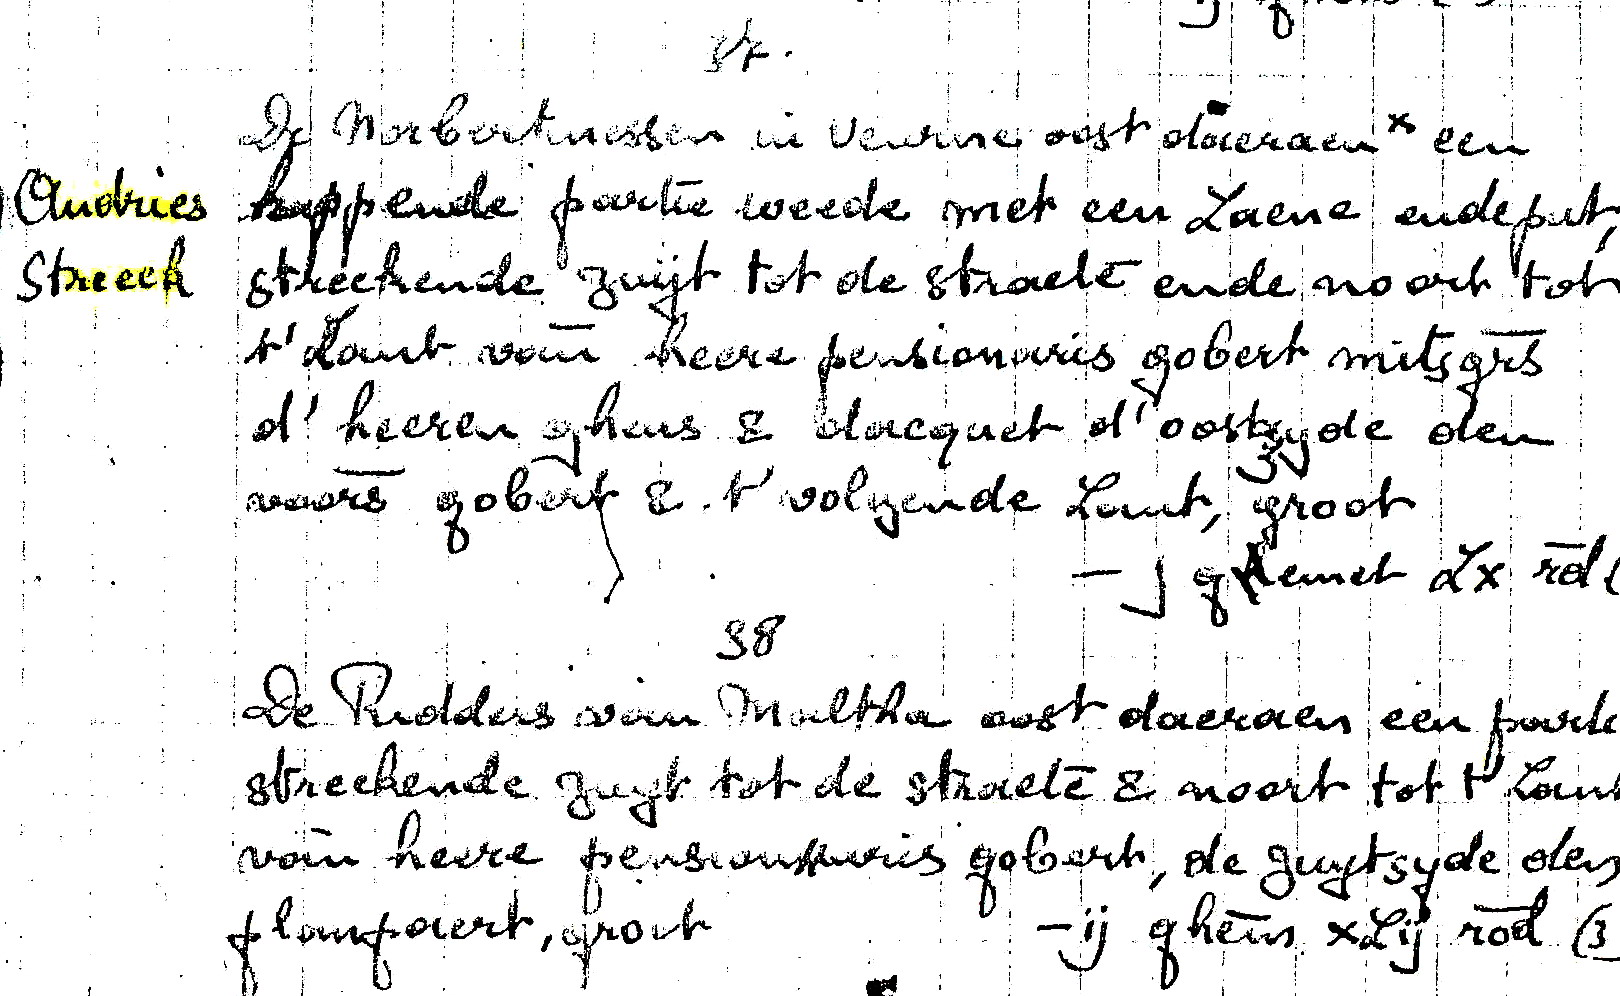 37.
De Norbertinessen in veurne oost daeraen x een
Andries happende partie weede met een Laene ende put,
Streeck streckende zuijt tot de straete ende noort tot
t' Lant van heere pensionaris gobert mitsgrs
d' heeren gheus & dacquet d' oostzyde den
voors gobert & t' volgende Lant, groot
- j ghemet Lx rod (
38
De Ridders van Maltha oost daeraen een park
streckende zuyt tot de straete & noort tot t' Lant
van heere pensionaris gobert, de zuytsyde den
plampaert, groot - ij ghems xLij rod (3